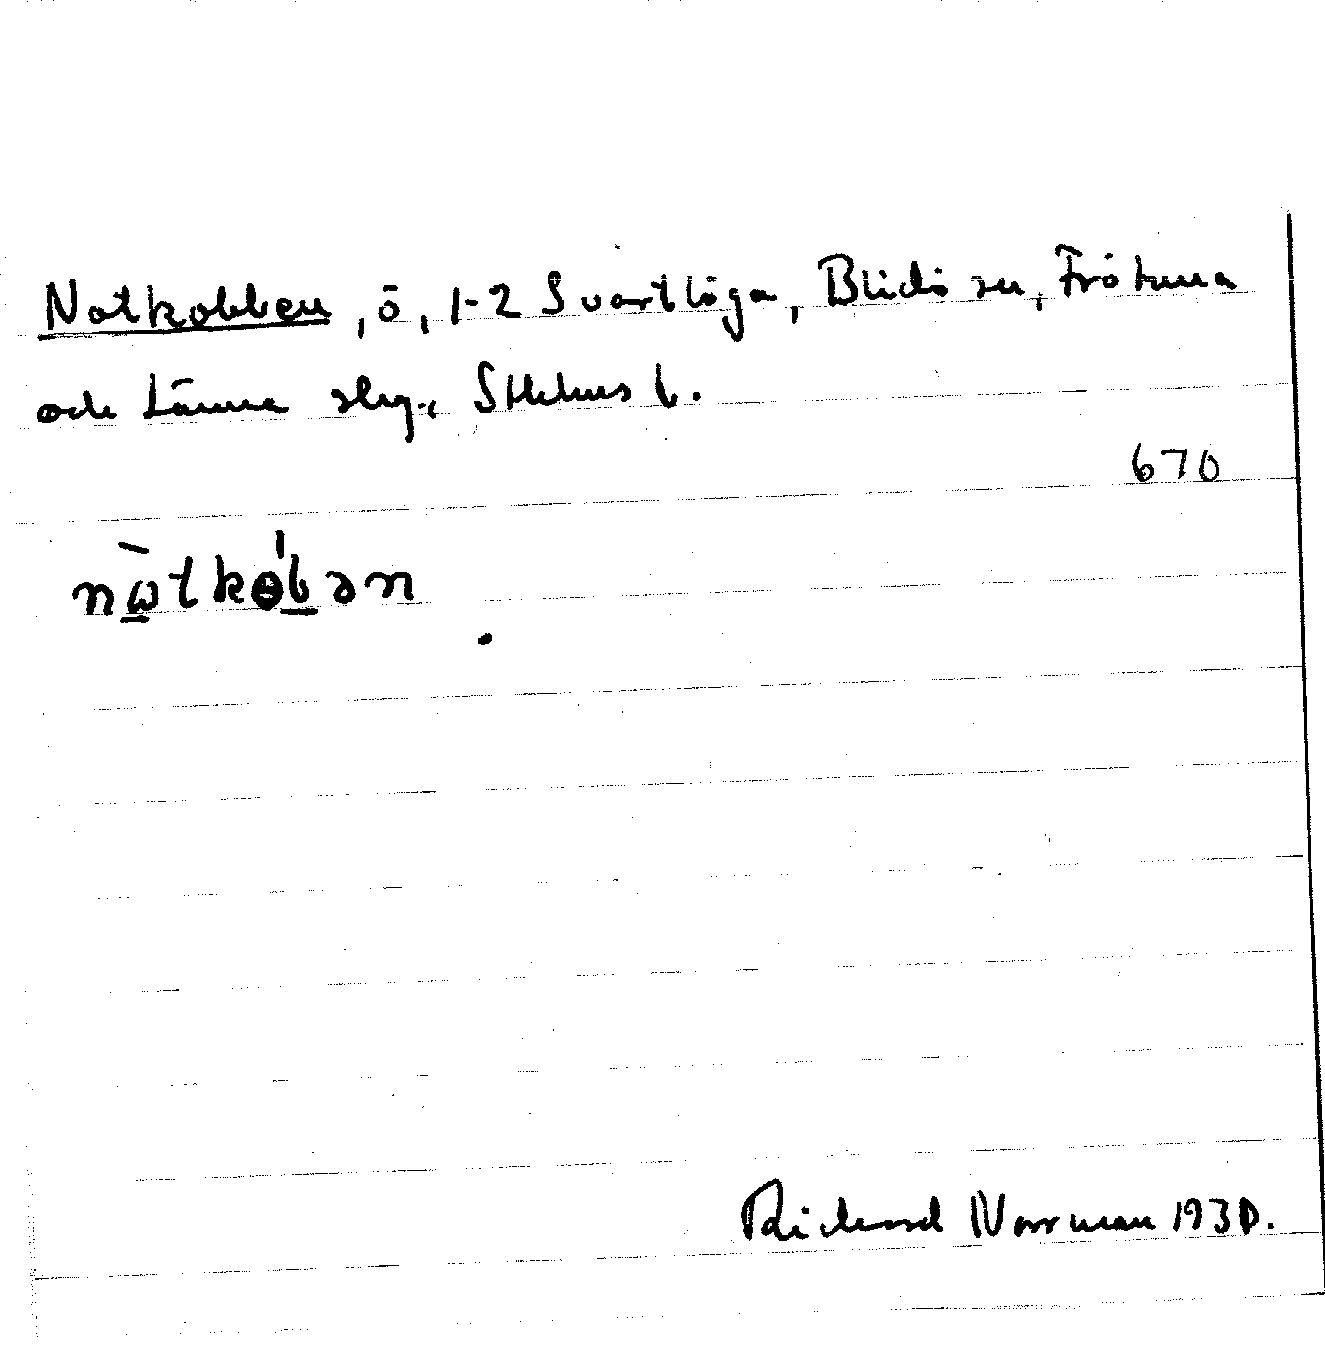 Notkobben, ö, 1-2 Svartlöga, Blidö sn, Frötuna
och Länna slg., Sthlms l.
670
nὼtkɵb́ən
Richard Norrman 1930.